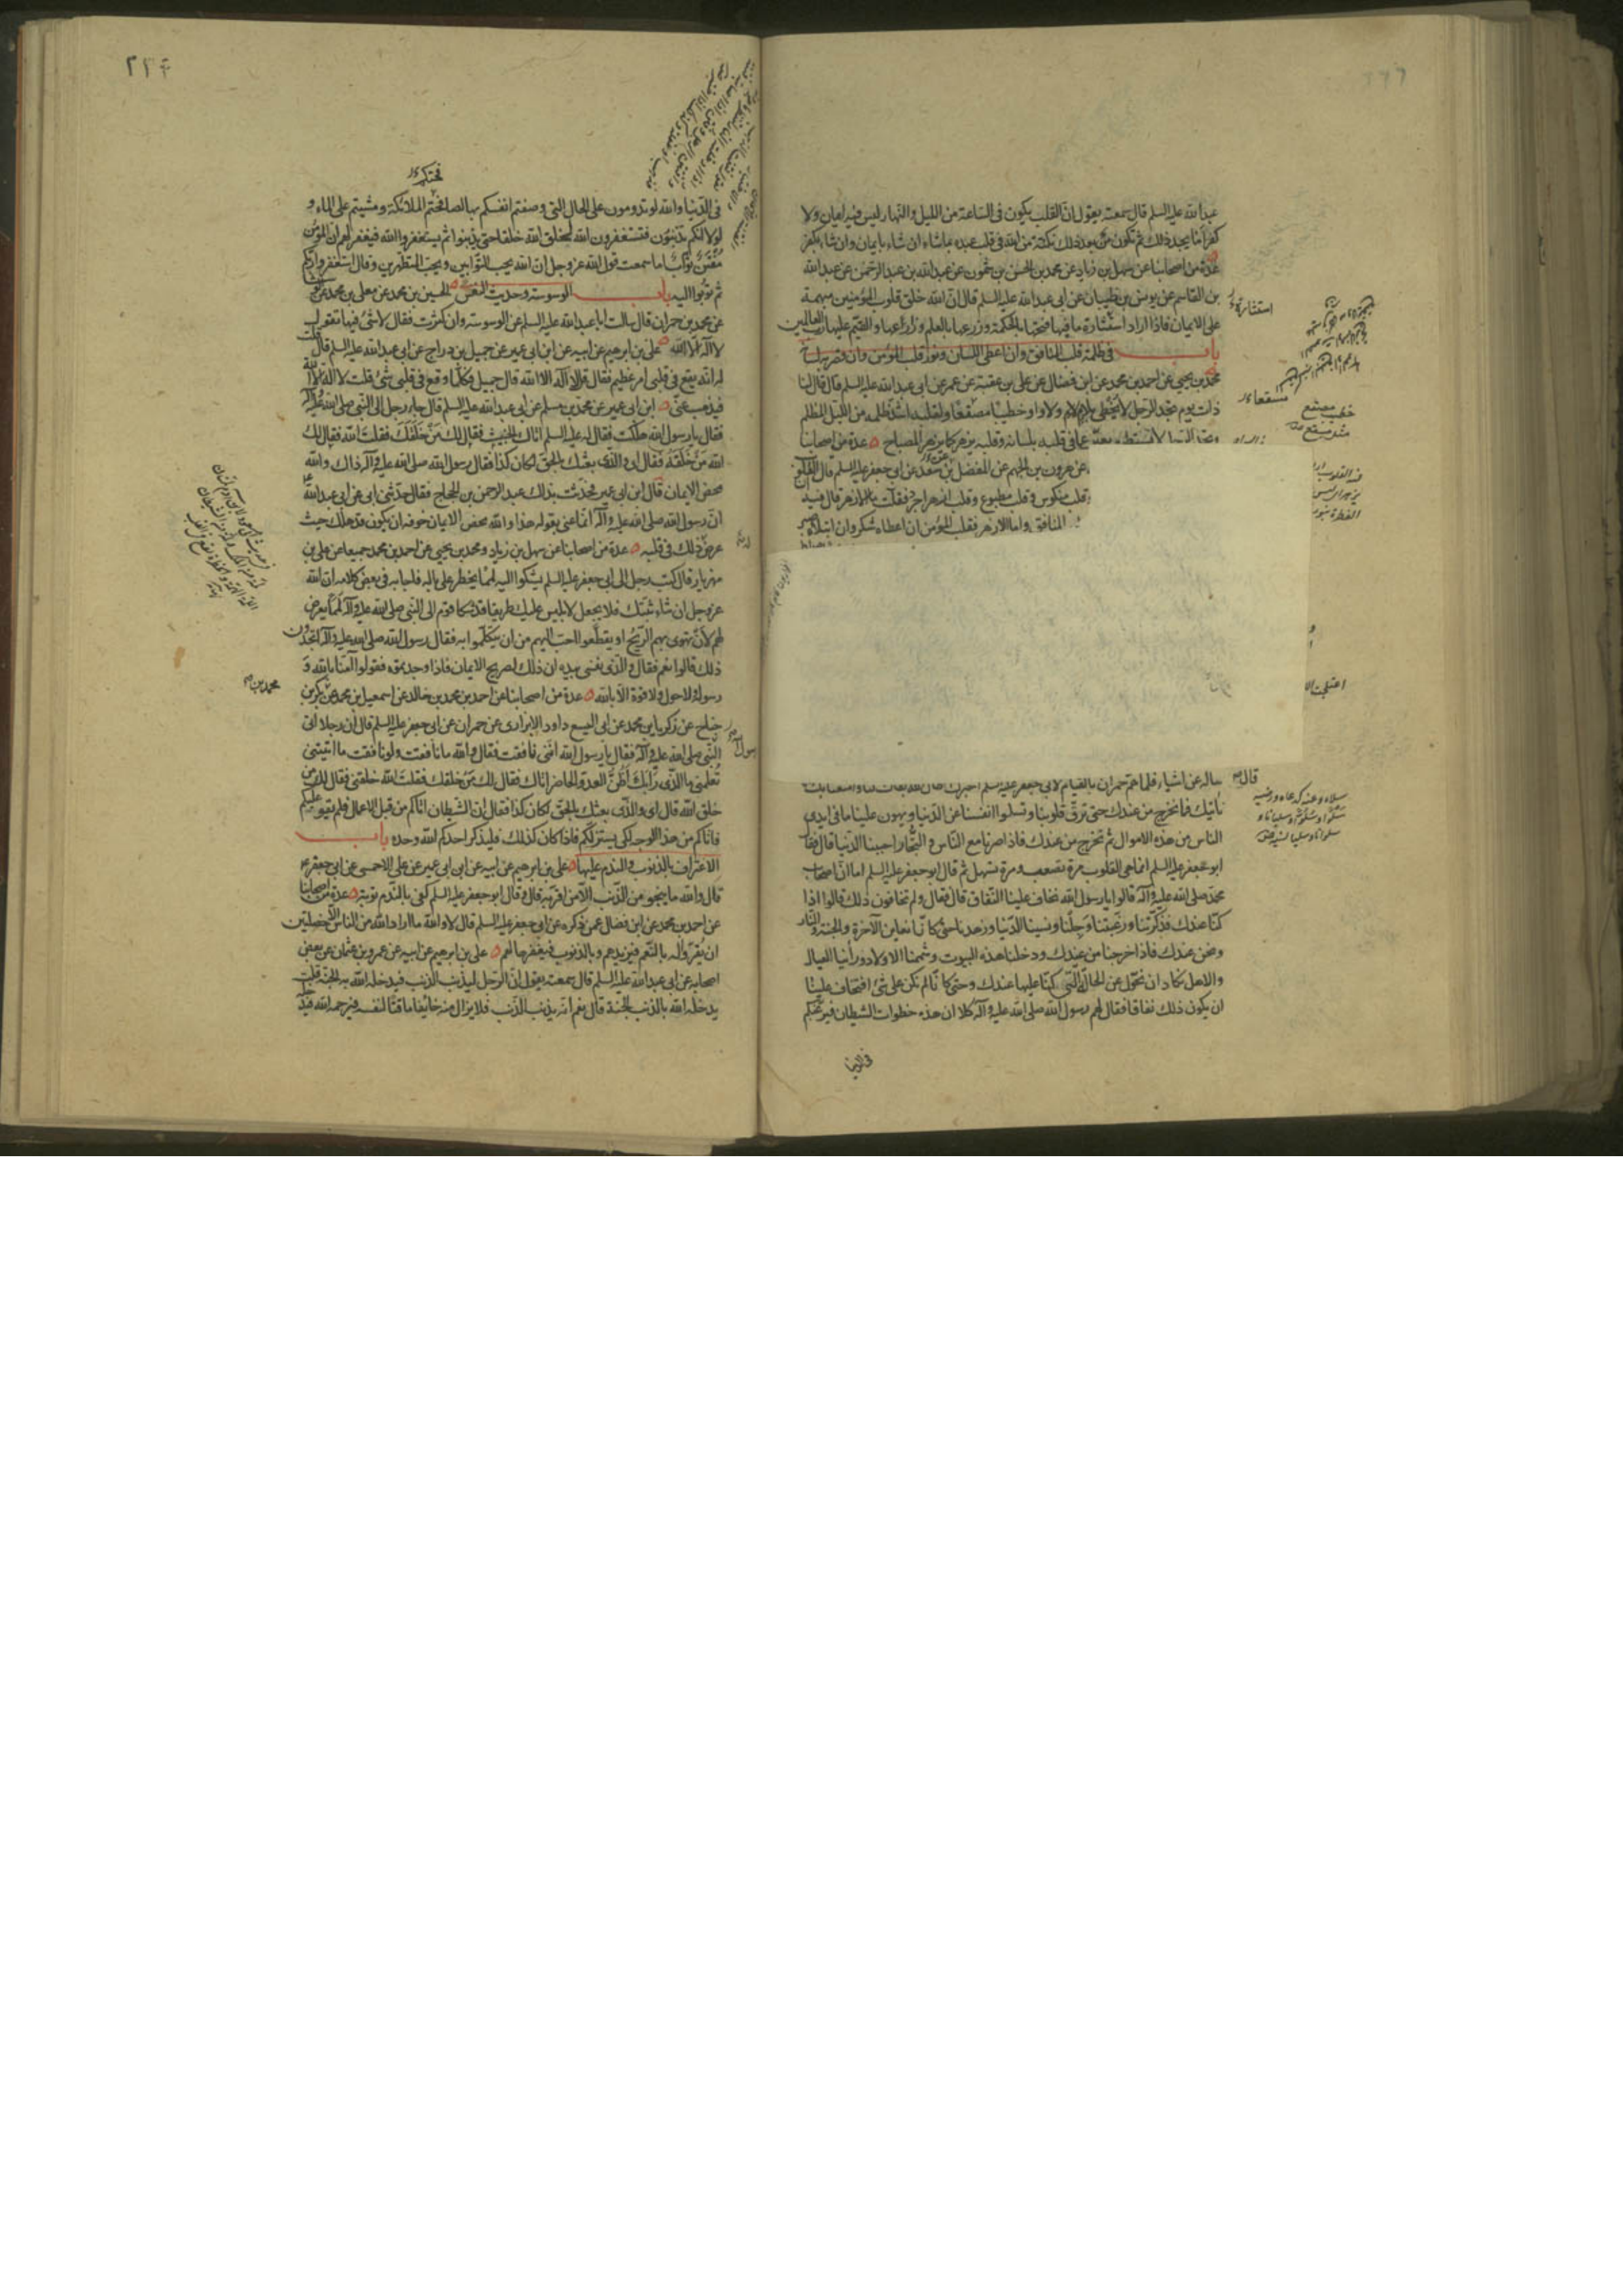 عبدالله عليه السلم قال سمعته يقول ان القلب يكون فى الساعة من الليل والنهار ليس فيه ايمان ولا
كفر اما يجد ذلك ثم تكون بعد ذلك نكتة من الله فى قلب عبده بما شاء ان شاء بايمان وان شاء بكفر
عدة من اصحابنا عن سهل بن زياد عن محمد بن الحسن بن شمون عن عبدالله بن عبد الرحمن عن عبدالله
بن القاسم عن يونس بن ظبيان عن ابى عبدالله عليه السلم قال ان الله خلق قلوب المؤمنين مبهمة
على الايمان فاذا اراد استثارة ما فيها فتحها بالحكمة وزرعها بالعلم وزارعها والقيم عليها رب العالمين
باب فى ظلمة قلب المنافق وان اعطى اللسان ونور قلب المؤمن وان قصر به لسانه
محمد بن يحيى عن احمد بن محمد عن ابن فضال عن على بن عقبة عن عمر عن ابى عبدالله عليه السلم قال قال لنا
ذات يوم تجد الرجل لا يخطى بلام ولا واو خطيبا مصقعا ولقلبه اشد ظلمة من الليل المظلم
وتجد الرجل لا يستطيع يعبر عما فى قلبه بلسانه وقلبه يزهر كما يزهر المصباح عدة من اصحابنا
عن هرون بن الجهم عن المفضل عن سعد عن ابى جعفر عليه السلم قال ان القلوب
قلب منكوس وقلب مطبوع وقلب ازهر اجرد فقلت ما الازهر قال فيه
المنافق واما الازهر فقلب المؤمن ان اعطاه شكر وان ابتلاه صبر
ساله عن اشياء فلما هم حمران بالقيام قال لابى جعفر عليه السلم اخبرك
نأتيك فما نخرج من عندك حتى ترق قلوبنا وتسلوا انفسنا عن الدنيا ويهون علينا ما فى ايدى
الناس من هذه الاموال ثم نخرج من عندك فاذا صرنا مع الناس والتجار احببنا الدنيا قال فقال
ابو جعفر عليه السلم انما هى القلوب مرة تصعب ومرة تسهل ثم قال ابو جعفر عليه السلم اما ان اصحاب
محمد صلى الله عليه وآله قالوا يا رسول الله نخاف علينا النفاق قال فقال ولم تخافون ذلك قالوا اذا
كنا عندك فذكرتنا ورغبتنا وجلنا ونسينا الدنيا وزهدنا حتى كانا نعاين الآخرة والجنة والنار
ونحن عندك فاذا خرجنا من عندك ودخلنا هذه البيوت وشممنا الاولاد ورأينا العيال
والاهل نكاد ان نحول عن الحالة التى كنا عليها عندك وحتى كانا لم نكن على شئ افتخاف علينا
ان يكون ذلك نفاقا فقال لهم رسول الله صلى الله عليه وآله كلا ان هذه خطوات الشيطان فيرغبكم
فى الدنيا
استثارة
مسقعا
قال
٢٢۴
فى الدنيا والله لو تدومون على الحال التى وصفتم انفسكم بها لصافحتكم الملائكة ومشيتم على الماء و
لولا انكم تذنبون فتستغفرون الله لخلق الله خلقا حتى يذنبوا ثم يستغفروا الله فيغفر لهم ان المؤمن
مفتن تواب اما سمعت قول الله عز وجل ان الله يحب التوابين ويحب المتطهرين وقال استغفروا ربكم
ثم توبوا اليه باب الوسوسة وحديث النفس الحسين بن محمد عن معلى بن محمد عن الوشاء
عن محمد بن حمران قال سالت ابا عبدالله عليه السلم عن الوسوسة وان كثرت فقال لا شئ فيها تقول
لا اله الا الله على بن ابرهيم عن ابيه عن ابن ابى عمير عن جميل بن دراج عن ابى عبدالله عليه السلم قال قلت
له انه يقع فى قلبى امر عظيم فقال قل لا اله الا الله قال جميل فكلما وقع فى قلبى شئ قلت لا اله الا الله
فيذهب عنى ابن ابى عمير عن محمد بن مسلم عن ابى عبدالله عليه السلم قال جاء رجل الى النبى صلى الله عليه وآله
فقال يا رسول الله هلكت فقال له عليه السلم اتاك الخبيث فقال لك من خلقك فقلت الله فقال لك
الله من خلقه فقال اى والذى بعثك بالحق لكان كذا فقال رسول الله صلى الله عليه وآله ذاك والله
محض الايمان قال ابن ابى عمير فحدثت بذلك عبد الرحمن بن الحجاج فقال حدثنى ابى عن ابى عبدالله
ان رسول الله صلى الله عليه وآله انما عنى بقوله هذا والله محض الايمان خوفه ان يكون قد هلك حيث
عرض ذلك فى قلبه عدة من اصحابنا عن سهل بن زياد ومحمد بن يحيى عن احمد بن محمد جميعا عن على بن
مهزيار قال كتب رجل الى ابى جعفر عليه السلم يشكوا اليه لمما يخطر على باله فاجابه فى بعض كلامه ان الله
عز وجل ان شاء ثبتك فلا يجعل لابليس عليك طريقا قد شكا قوم الى النبى صلى الله عليه وآله لمما يعرض
لهم لان تهوى بهم الريح او يقطعوا احب اليهم من ان يتكلموا به فقال رسول الله صلى الله عليه وآله اتجدون
ذلك قالوا نعم فقال والذى نفسى بيده ان ذلك لصريح الايمان فاذا وجدتموه فقولوا آمنا بالله و
رسوله ولا حول ولا قوة الا بالله عدة من اصحابنا عن احمد بن محمد بن خالد عن اسمعيل بن محمد عن بكر بن
جناح عن زكريا بن محمد عن ابى اليسع داود الابزارى عن حمران عن ابى جعفر عليه السلم قال ان رجلا اتى
النبى صلى الله عليه وآله فقال يا رسول الله اننى نافقت فقال والله ما نافقت ولو نافقت ما اتيتنى
تعلمنى ما الذى رابك اظن العدو الحاضر اتاك فقال لك من خلقك فقلت الله خلقنى فقال لك من
خلق الله قال اى والذى بعثك بالحق لكان كذا فقال ان الشيطان اتاكم من قبل الاعمال فلم يقو عليكم
فاتاكم من هذا الوجه لكى يستزلكم فاذا كان كذلك فليذكر احدكم الله وحده باب
الاعتراف بالذنوب والندم عليها على بن ابرهيم عن ابيه عن ابن ابى عمير عن على الاحمسى عن ابى جعفر
قال والله ما ينجو من الذنب الا من اقر به قال وقال ابو جعفر عليه السلم كفى بالندم توبة عدة من اصحابنا
عن احمد بن محمد عن ابن فضال عمن ذكره عن ابى جعفر عليه السلم قال لا والله ما اراد الله من الناس الا خصلتين
ان يقروا له بالنعم فيزيدهم وبالذنوب فيغفرها لهم على بن ابرهيم عن ابيه عن عمرو بن عثمان عن بعض
اصحابه عن ابى عبدالله عليه السلم قال سمعته يقول ان الرجل ليذنب الذنب فيدخله الله به الجنة قلت
يدخله الله بالذنب الجنة قال نعم انه يذنب الذنب فلا يزال منه خائفا ماقتا لنفسه فيرحمه الله فيدخله
محمد بن